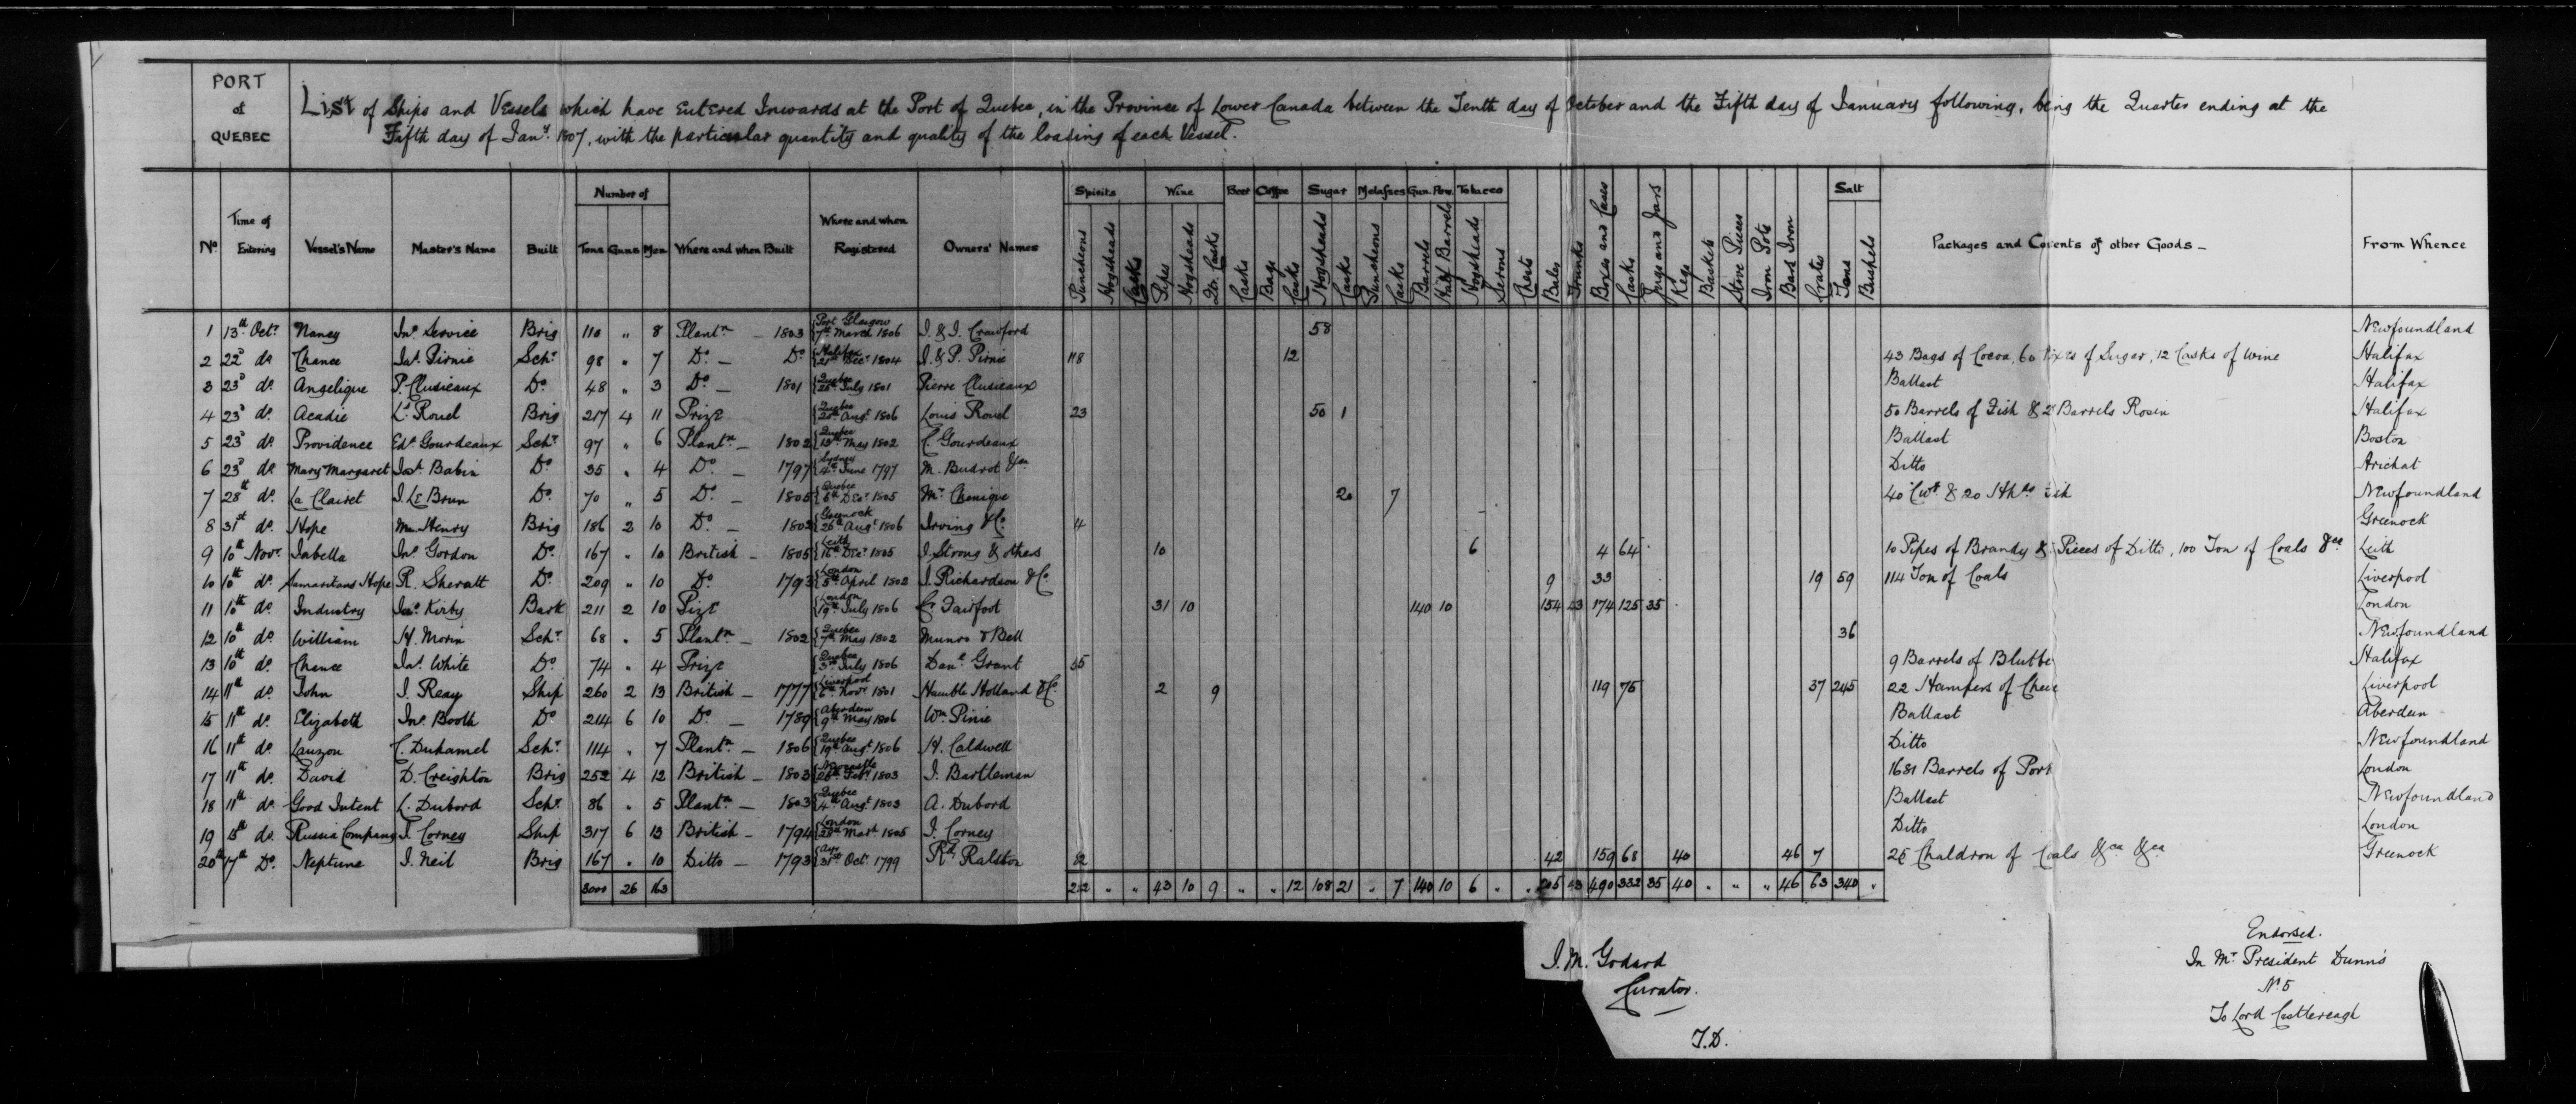 PORT
of
QUEBEC
List of Ships and Vessels which have Entered Inwards at the Port of Quebec, in the Province of Lower Canada between the Tenth day of October and the Fifth day of January following, being the Quarter ending at the
Fifth day of Jany. 1807, with the particular quantity and quality of the loading of each Vessel.
Number of Spirits Wine Beer Coffee Sugar Melasses Gun. Pow. Tobacco Salt
No. Time of Entering Vessel's Name Master's Name Built Tons Guns Men Where and when Built Where and when Registered Owners' Names Puncheons Hogsheads Casks Pipes Hogsheads Qr. Casks Casks Bags Casks Hogsheads Casks Puncheons Casks Barrels Half Barrels Hogsheads Serons Chests Bales Trunks Boxes and Cases Casks Jugs and Jars Kegs Baskets Stove Pieces Iron Pots Bars Iron Crates Tons Bushels Packages and Contents of other Goods - From Whence
1 13th Octr. Nancy Jno. Service Brig 110 " 8 Plantn. - 1803 Port Glasgow 7th March 1806 I. & I. Crawford 58 Newfoundland
2 22d do. Chance Jas. Pirnie Schr. 98 " 7 Do. - Do. Halifax 21st Decr. 1804 I. & P. Pirnie 118 12 43 Bags of Cocoa, 60 Boxes of Sugar, 12 Casks of Wine Halifax
3 23d do. Angelique P. Clusieaux Do. 48 " 3 Do. - 1801 Quebec 28th July 1801 Pierre Clusieaux Ballast Halifax
4 23d do. Acadie Ls. Rouel Brig 217 4 11 Prize Quebec 20th Augt. 1806 Louis Rouel 23 50 1 50 Barrels of Fish & 2 Barrels Rosin Halifax
5 23d do. Providence Edd. Gourdeaux Schr. 97 " 6 Plantn. - 1802 Quebec 13th May 1802 C. Gourdeaux Ballast Boston
6 23d do. Mary Margaret Josh. Babin Do. 35 " 4 Do. - 1797 Sydney 4th June 1797 M. Budrot &ca. Ditto Arichat
7 28th do. La Clairet I. Le Brun Do. 70 " 5 Do. - 1805 Quebec 6th Decr. 1805 Mr. Chenique 20 7 40 Cwt. & 20 Hhds Fish Newfoundland
8 31st do. Hope Henry Brig 186 2 10 Do. - 1802 Greenock 26th Augt. 1806 Irving & Co. 4 Greenock
9 10th Novr. Isabella Jno. Gordon Do. 167 " 10 British - 1805 Leith 16th Decr. 1805 I. Strong & others 10 6 4 64 10 Pipes of Brandy & Pieces of Ditto, 100 Ton of Coals &ca Leith
10 10th do. Samaritans Hope R. Sheratt Do. 209 " 10 Do. 1793 London 5th April 1802 I. Richardson & Co. 9 33 19 59 114 Ton of Coals Liverpool
11 10th do. Industry Jas. Kirby Bark 211 2 10 Pize London 19th July 1806 C. Fawfoot 31 10 140 10 154 43 174 125 35 London
12 10th do. William H. Morin Schr. 68 " 5 Plantn. - 1802 Quebec 7th May 1802 Munro & Bell 36 Newfoundland
13 10th do. Chance Jas. White Do. 74 " 4 Prize Quebec 3rd July 1806 Danl. Grant 35 9 Barrels of Blubbe Halifax
14 11th do. John I. Reay Ship 260 2 13 British - 1777 Liverpool 6th Novr. 1801 Hamble Holland & Co. 2 9 119 75 37 245 22 Hampers of Cheese Liverpool
15 11th do. Elizabeth Jno. Booth Do. 214 6 10 Do. - 1789 Aberdeen 9th May 1806 Wm. Pinie Ballast Aberdeen
16 11th do. Lauzon C. Duhamel Schr. 114 " 7 Plantn. - 1806 Quebec 19th Augt. 1806 H. Caldwell Ditto Newfoundland
17 11th do. David D. Creighton Brig 252 4 12 British - 1803 Newcastle 26th Feby. 1803 I. Bartleman 1681 Barrels of Pork London
18 11th do. Good Intent L. Dubord Schr. 86 " 5 Plantn. - 1803 Quebec 4th Augt. 1803 A. Dubord Ballast Newfoundland
19 15th do. Russia Company I. Corney Ship 317 6 13 British - 1794 London 25th March 1805 I. Corney Ditto London
20th 17th Do. Neptune I. Neil Brig 167 " 10 Ditto - 1793 Ayr 31st Octr. 1799 Rd. Ralston 32 42 159 68 40 46 7 26 Chaldron of Coals &ca &ca Greenock
3000 26 163 212 " " 43 10 9 " " 12 108 21 " 7 140 10 6 " " 205 43 490 332 35 40 " " " 46 63 340 "
I. M. Godard
Curator.
T.D.
Endorsed.
In Mr. President Dunn's
No. 5
To Lord Castlereagh